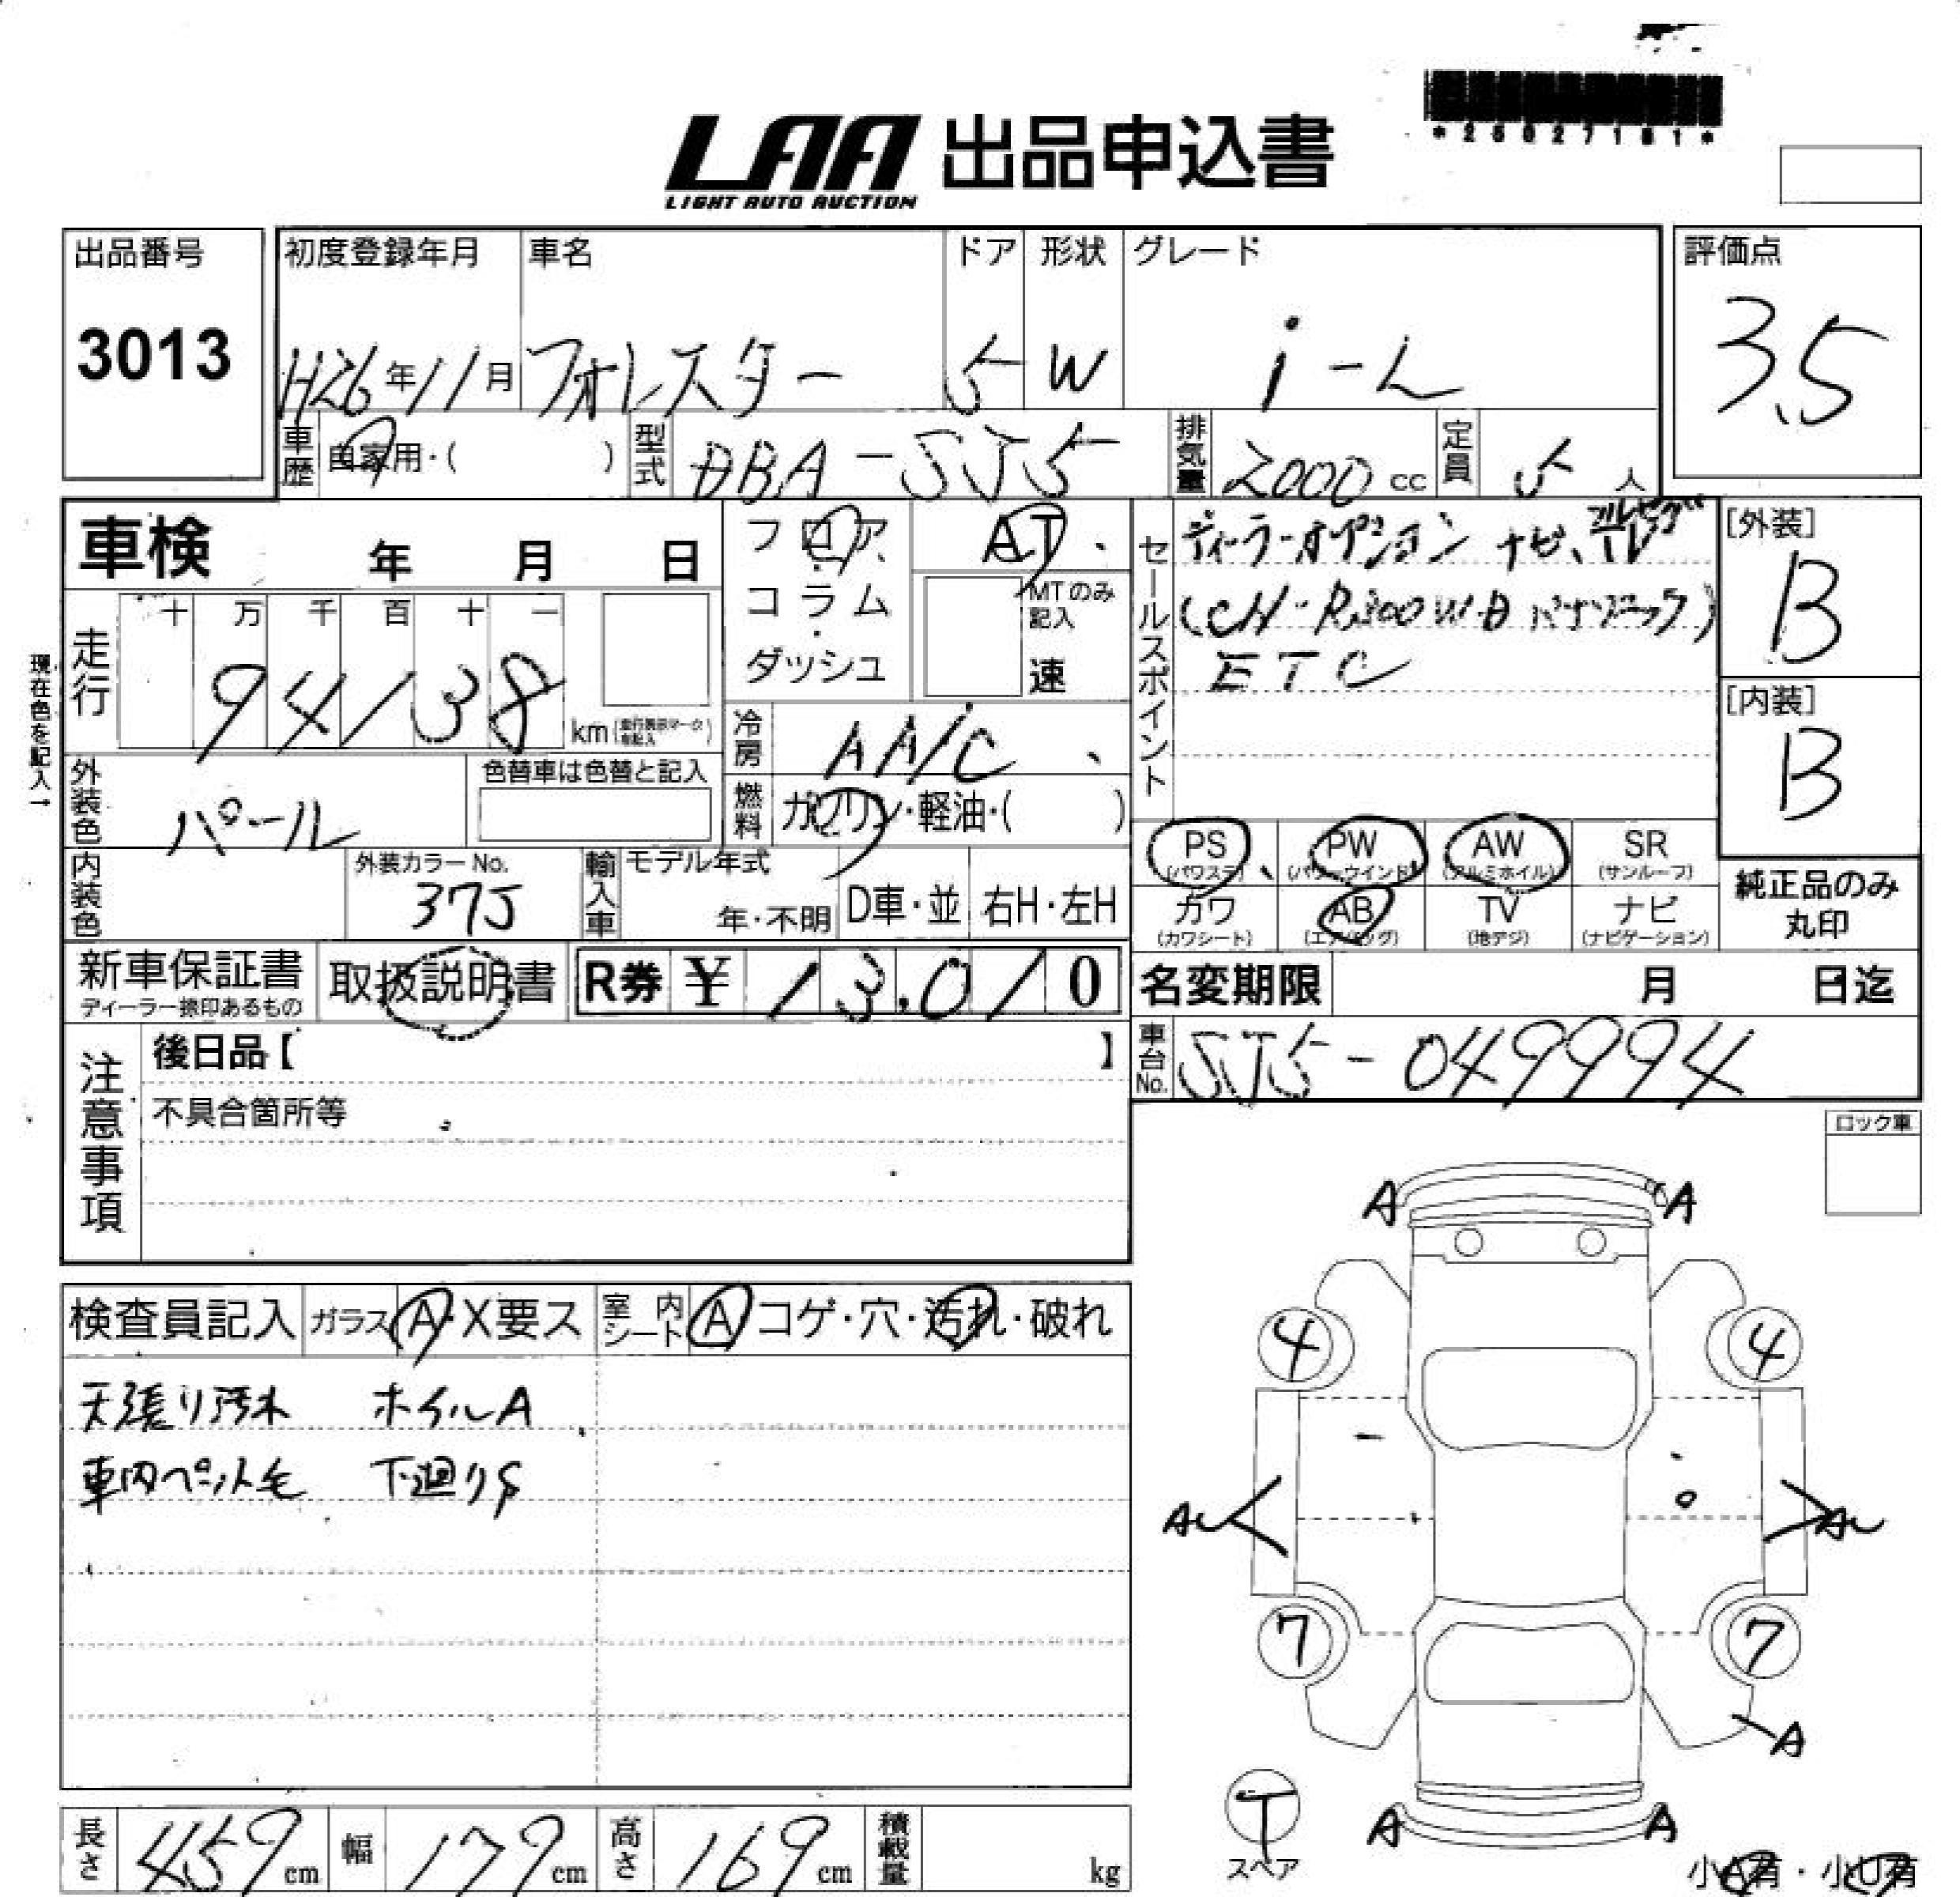 *25027181*
LAA 出品申込書
LIGHT AUTO AUCTION
出品番号
3013
初度登録年月 車名 ドア 形状 グレード 評価点
H26年11月 フォレスター 5 W i-L 3.5
車歴 自家用・( ) 型式 DBA-SJ5 排気量 2000cc 定員 5人
車検 年 月 日
フロア・コラム・ダッシュ
AT
MTのみ記入
速
セールスポイント
ディーラーオプション ナビ、フルセグTV
(CN-R300WD パナソニック)
ETC
[外装]
B
[内装]
B
走行 十 万 千 百 十 一
94138 km
現在色を記入→
冷房 AA/C
外装色 パール 色替車は色替と記入
燃料 ガソリン・軽油・( )
PS (パワステ) PW (パワーウインド) AW (アルミホイル) SR (サンルーフ)
カワ (カワシート) AB (エアバッグ) TV (地デジ) ナビ (ナビゲーション)
純正品のみ
丸印
内装色 外装カラーNo. 37J 輸入車 モデル年式 年・不明 D車・並 右H・左H
新車保証書 取扱説明書 R券 ¥13,010
ディーラー捺印あるもの
名変期限 月 日迄
車台No. SJ5-049994
注意事項
後日品【 】
不具合箇所等
ロック車
検査員記入 ガラス A・X要ス 室内シート A コゲ・穴・汚れ・破れ
天張り汚れ ホイルA
車内ペット毛 下廻りS
A A
4 4
AU AU
7 7
A
T
スペア
A A
小A有・小U有
長さ 459cm 幅 179cm 高さ 169cm 積載量 kg